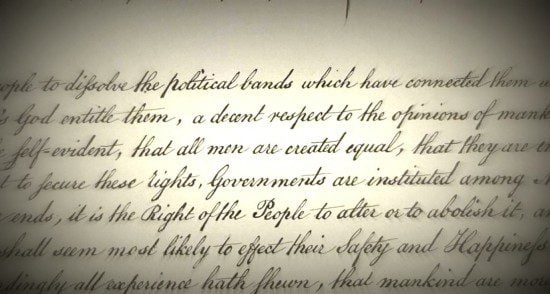 ople to dissolve the political bands which have connected them
s God entitle them, a decent respect to the opinions of mank
e self-evident, that all men are created equal, that they are en
t to secure these rights, Governments are instituted among
ends, it is the Right of the People to alter or to abolish it, an
shall seem most likely to effect their Safety and Happiness
dingly all experience hath shewn, that mankind are more